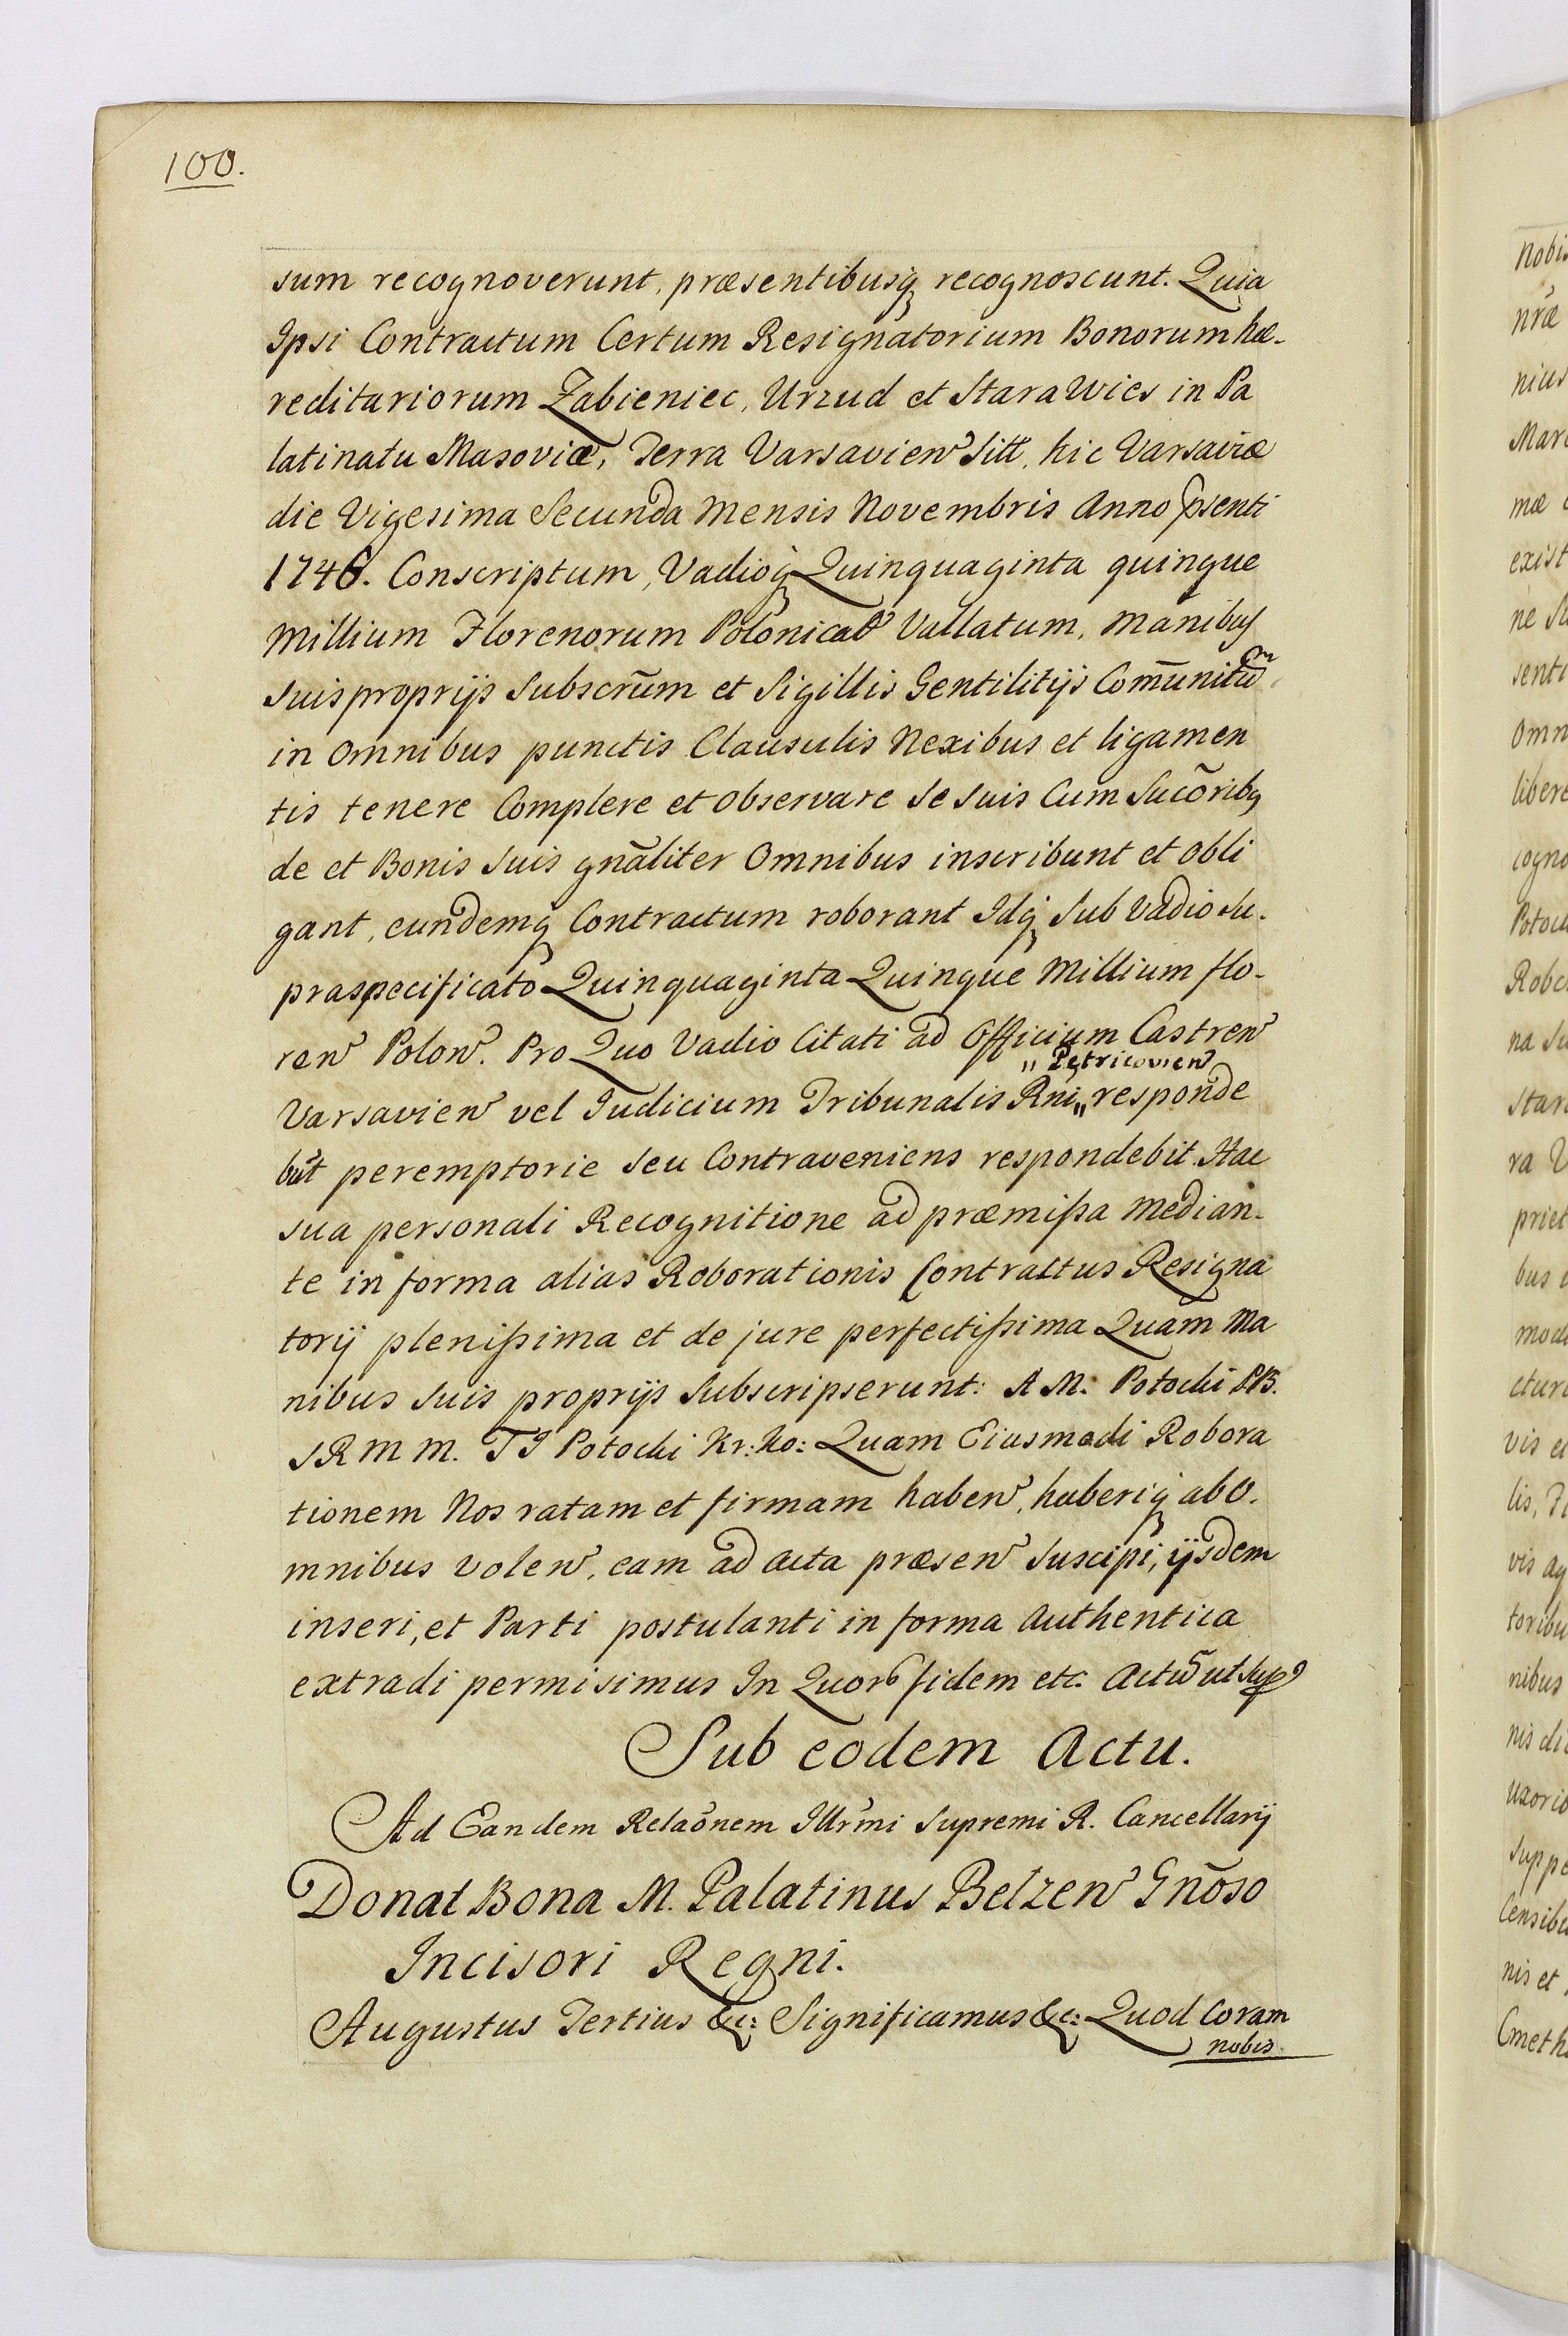 100.
sum recognoverunt, præsentibusq; recognoscunt. Quia
Ipsi Contractum Certum Resignatorium Bonorum hæ-
reditariorum Zabieniec, Urzud et Stara Wies in Pa
latinatu Masoviæ, Terra Varsavien Sitt, hic Varsaviæ
die Vigesima Secunda Mensis Novembris Anno psenti
1746. Conscriptum, Vadioq; Quinquaginta quinque
Millium Florenorum Polonical Vallatum, Manibus
Suis proprijs Subscrūm et Sigillis Gentilitijs Com̄unitū
in Omnibus punctis Clausulis Nexibus et ligamen
tis tenere Complere et Observare Se Suis Cum Sucõribq
de et Bonis Suis gnãliter Omnibus inscribunt et obli
gant, eundemq; Contractum roborant Idq; Sub Vadio su-
praspecificato Quinquaginta Quinque Millium flo-
ren Polon. Pro Quo Vadio Citati ad Officium Castren
" Petricovien
Varsavien vel Iudicium Tribunalis Rni " responde
bũt peremptorie seu Contraveniens respondebit. Hac
sua personali Recognitione ad præmissa median-
te in forma alias Roborationis Contractus Resigna
torij plenissima et de jure perfectissima Quãm Ma
nibus Suis proprijs Subscripserunt: A M: Potocki PB.
SRMM. TJ Potocki Kr: Ko: Quam Eiusmodi Robora
tionem Nos ratam et firmam haben, haberiq; ab O-
mnibus volen, eam ad Acta præsen Suscipi, ijsdem
inseri, et Parti postulanti in forma Authentica
extradi permisimus In Quor fidem etc. Actũ ut Sup
Sub eodem Actu.
Ad Eandem Relaõnem Illr̃mi Supremi R. Cancellarij
Donat Bona M. Palatinus Belzen Gñoso
Incisori Regni.
Augustus Tertius &c: Significamus &c: Quod Coram
nobis